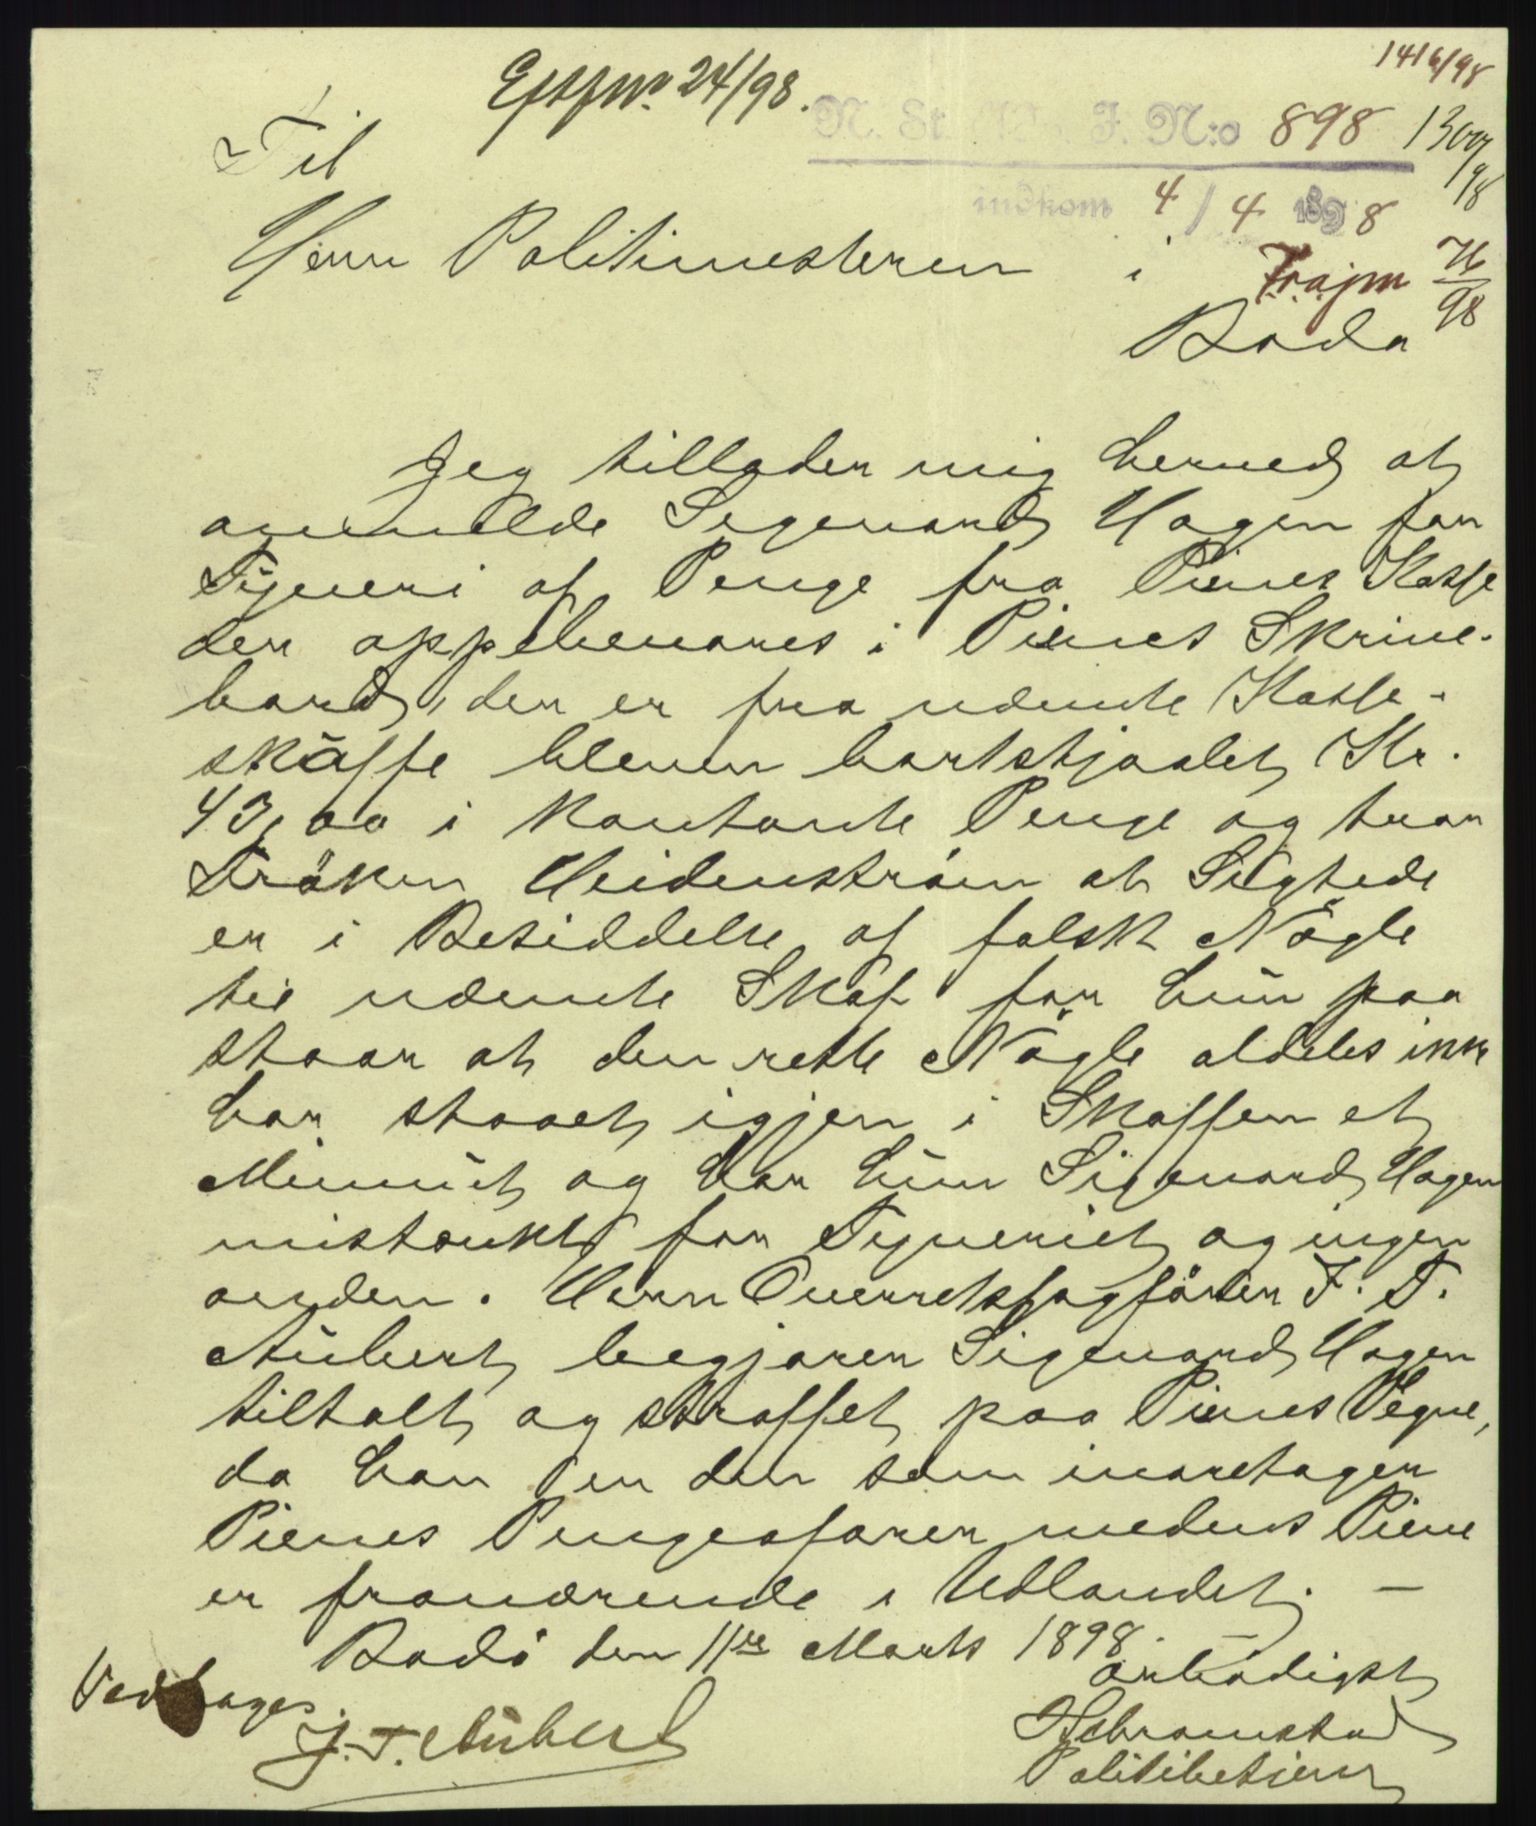 1416/98
Eftfm. 24/98.
N. St. J. N:o 898 1300/98
indkom 4/4 1898
Til
Herr Politimesteren i
Frajm 76/98
Bodø
Jeg tillader mig herved at
anmelde Sigvard Hagen for
Tyveri af Penge fra Pienes Kasse
der oppebevares i Pienes Skrive-
bord, der er fra nævnte Kasse-
skuffe bleven bortstjaalet Kr.
43,00 i kontante Penge og tror
Frøken Heidenstrøm at Sigtede
er i Besiddelse af falsk Nøgle
til nævnte Skuf for hun paa
staar at den rette Nøgle aldeles ikke
har staaet igjen i Skuffen et
Minut og har hun Sigvard Hagen
mistænkt for Tyveriet og ingen
anden. Herr Overretssagfører J. T.
Aubert begjærer Sigvard Hagen
tiltalt og straffet paa Pienes Vegne,
da han er den som ivaretager
Pienes Pengeaffærer medens Piene
er fraværende i Udlandet. —
Bodø den 11te Marts 1898.
Vedtages
J. T. Aubert
ærbødigst
Politibetjent